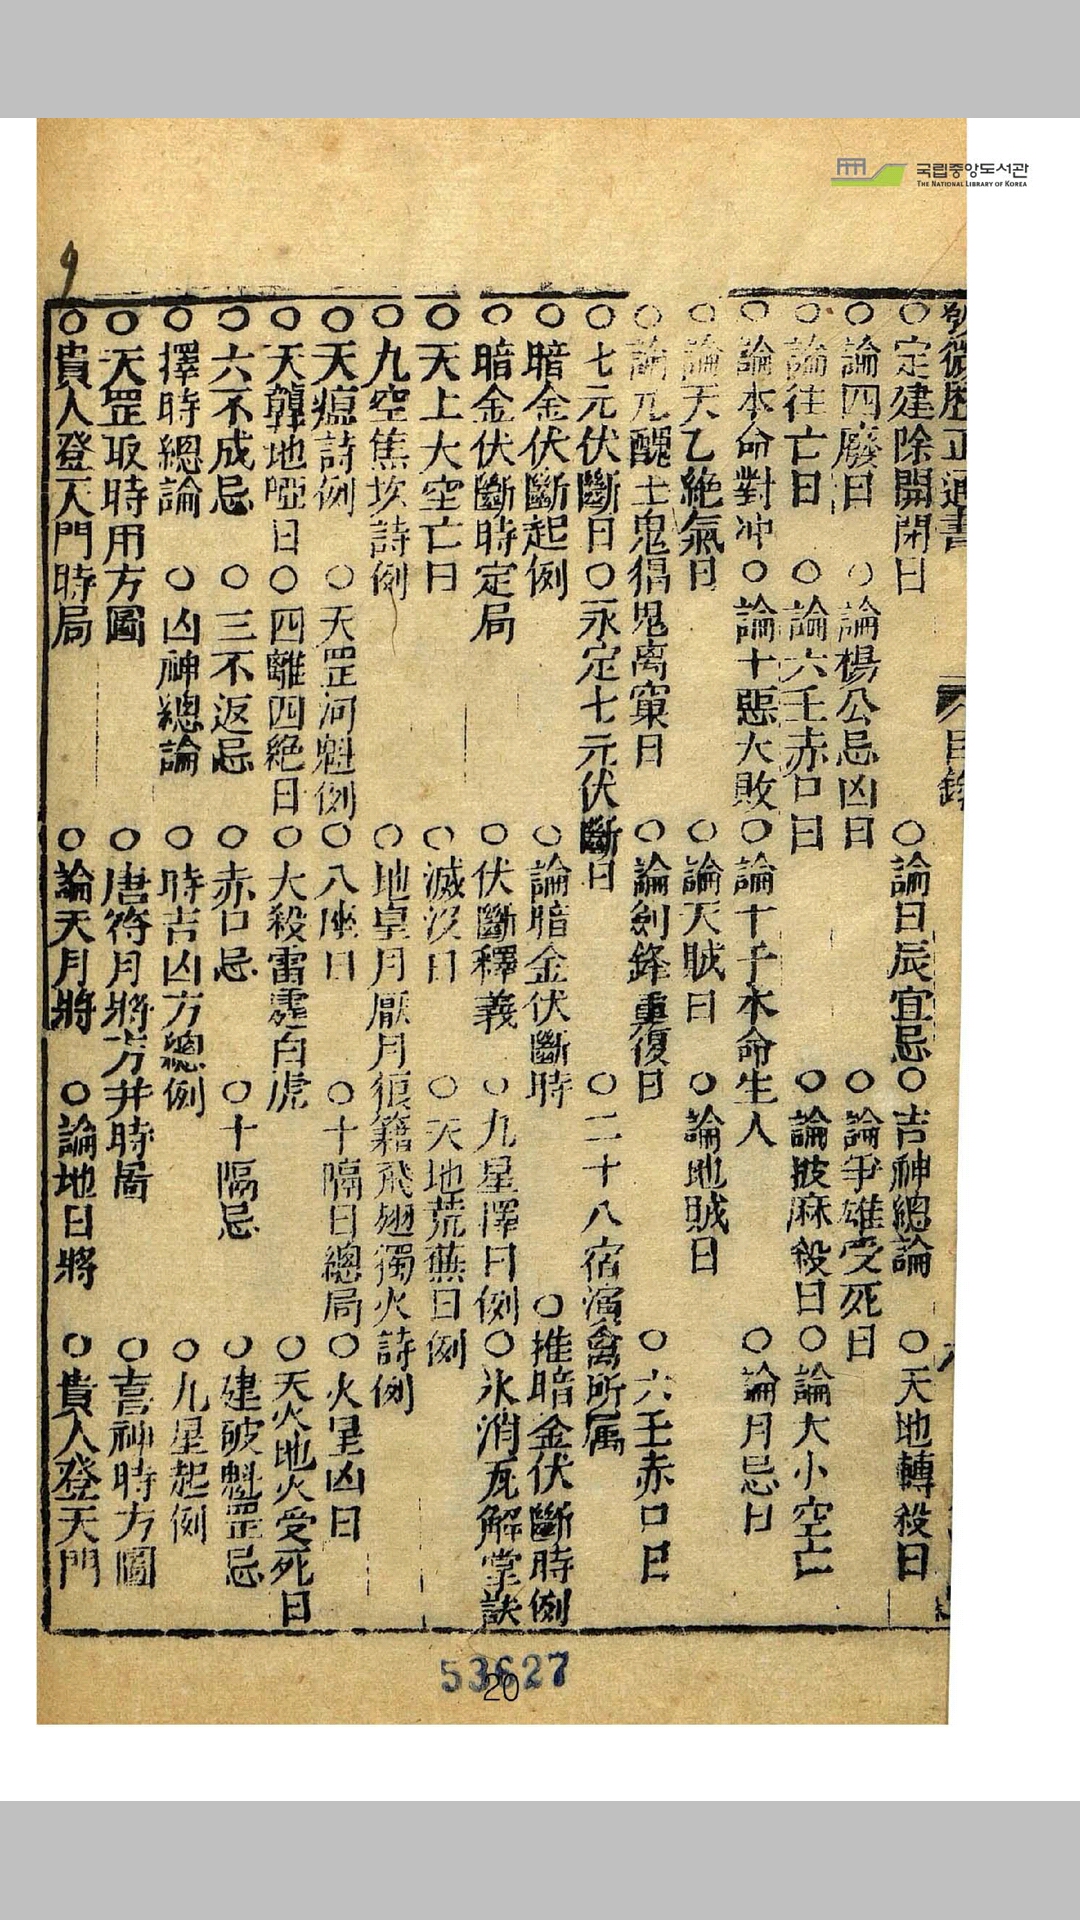 국립중앙도서관
THE NATIONAL LIBRARY OF KOREA
微曆正通書 目錄
○定建除開閉日 ○論日辰宜忌○吉神總論 ○天地轉殺日
○論四廢日 ○論楊公忌凶日 ○論爭雄受死日
○論往亡日 ○論六壬赤口日 ○論披麻殺日○論大小空亡
○論本命對冲○論十惡大敗○論十干本命生人 ○論月忌日
○論天乙絶氣日 ○論天賊日 ○論地賊日
○論兀醜士鬼猖鬼离窠日 ○論劍鋒重復日 ○六壬赤口日
○七元伏斷日○永定七元伏斷日 ○二十八宿演禽所属
○暗金伏斷起例 ○論暗金伏斷時 ○推暗金伏斷時例
○暗金伏斷時定局 ○伏斷釋義 ○九星擇日例○氷消瓦解掌訣
○天上大空亡日 ○滅沒日 ○天地荒蕪日例
○九空焦坎詩例 ○地皇月厭月狼籍飛翅獨火詩例
○天瘟詩例 ○天罡河魁例○八座日 ○十隔日總局○火星凶日
○天聾地啞日○四離四絶日○大殺雷霆白虎 ○天火地火受死日
○六不成忌 ○三不返忌 ○赤口忌 ○十隔忌 ○建破魁罡忌
○擇時總論 ○凶神總論 ○時吉凶方總例 ○九星起例
○天罡取時用方圖 ○唐符月將方井時圖 ○喜神時方圖
○貴人登天門時局 ○論天月將 ○論地日將 ○貴人登天門
9
53627
20